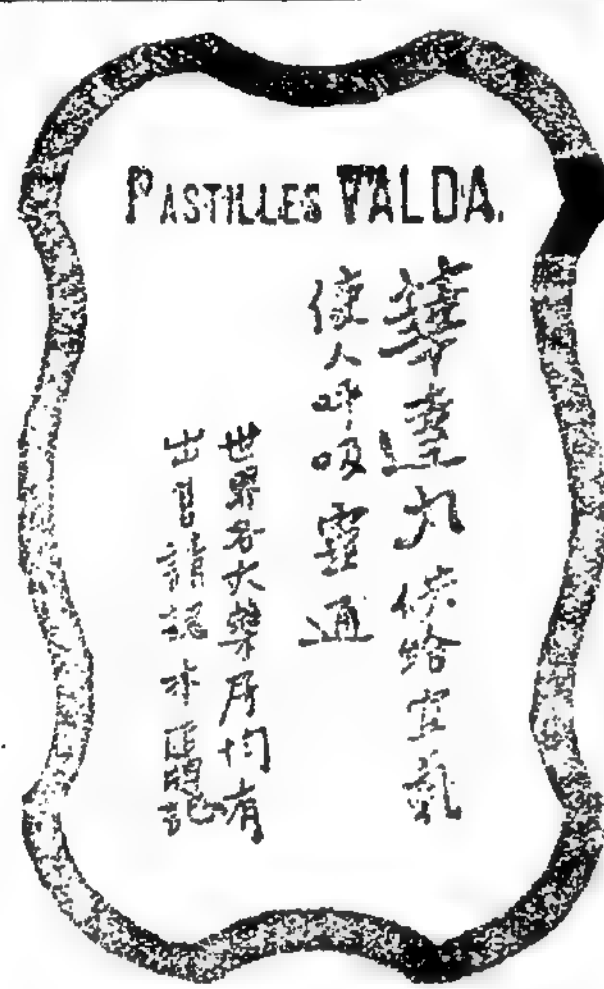 PASTILLES VALDA.
華達丸供給宜氣
使人呼吸靈通
世界各大藥房均有
出售請認本匾記